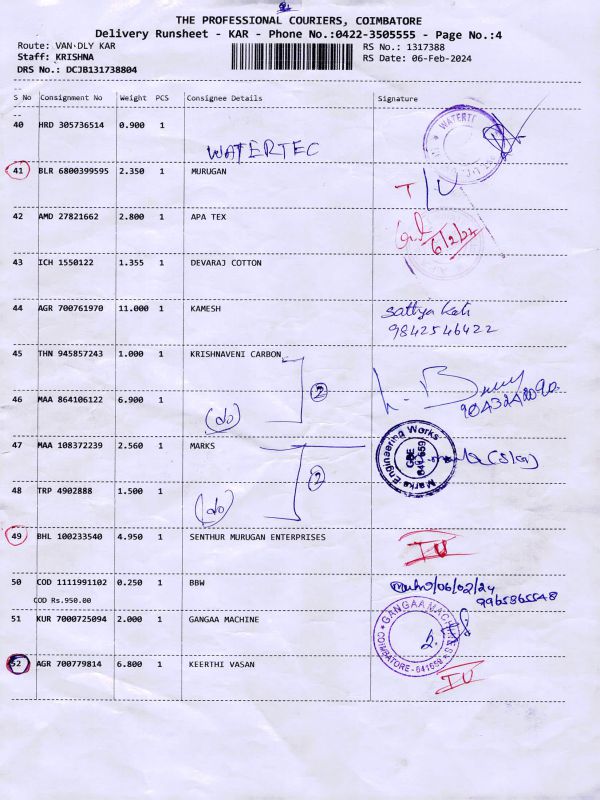 THE PROFESSIONAL COURIERS, COIMBATORE
Delivery Runsheet - KAR - Phone No.:0422-3505555 - Page No.:4
Route: VAN-DLY KAR RS No.: 1317388
Staff: KRISHNA RS Date: 06-Feb-2024
DRS No.: DCJB131738804
S No Consignment No Weight PCS Consignee Details Signature
40 HRD 305736514 0.900 1 WATERTEC
WATERTE
41 BLR 6800399595 2.350 1 MURUGAN
42 AMD 27821662 2.800 1 APA TEX 6/2/24
43 ICH 1550122 1.355 1 DEVARAJ COTTON
44 AGR 700761970 11.000 1 KAMESH
9842546422
45 THN 945857243 1.000 1 KRISHNAVENI CARBON
46 MAA 864106122 6.900 1 (do) 2
47 MAA 108372239 2.560 1 MARKS
Marks Engineering Works
48 TRP 4902888 1.500 1 (do) 2
49 BHL 100233540 4.950 1 SENTHUR MURUGAN ENTERPRISES
50 COD 1111991102 0.250 1 BBW 06/02/24
COD Rs.950.00
51 KUR 7000725094 2.000 1 GANGAA MACHINE
GANGAA MACHINE
COIMBATORE - 641659
52 AGR 700779814 6.800 1 KEERTHI VASAN